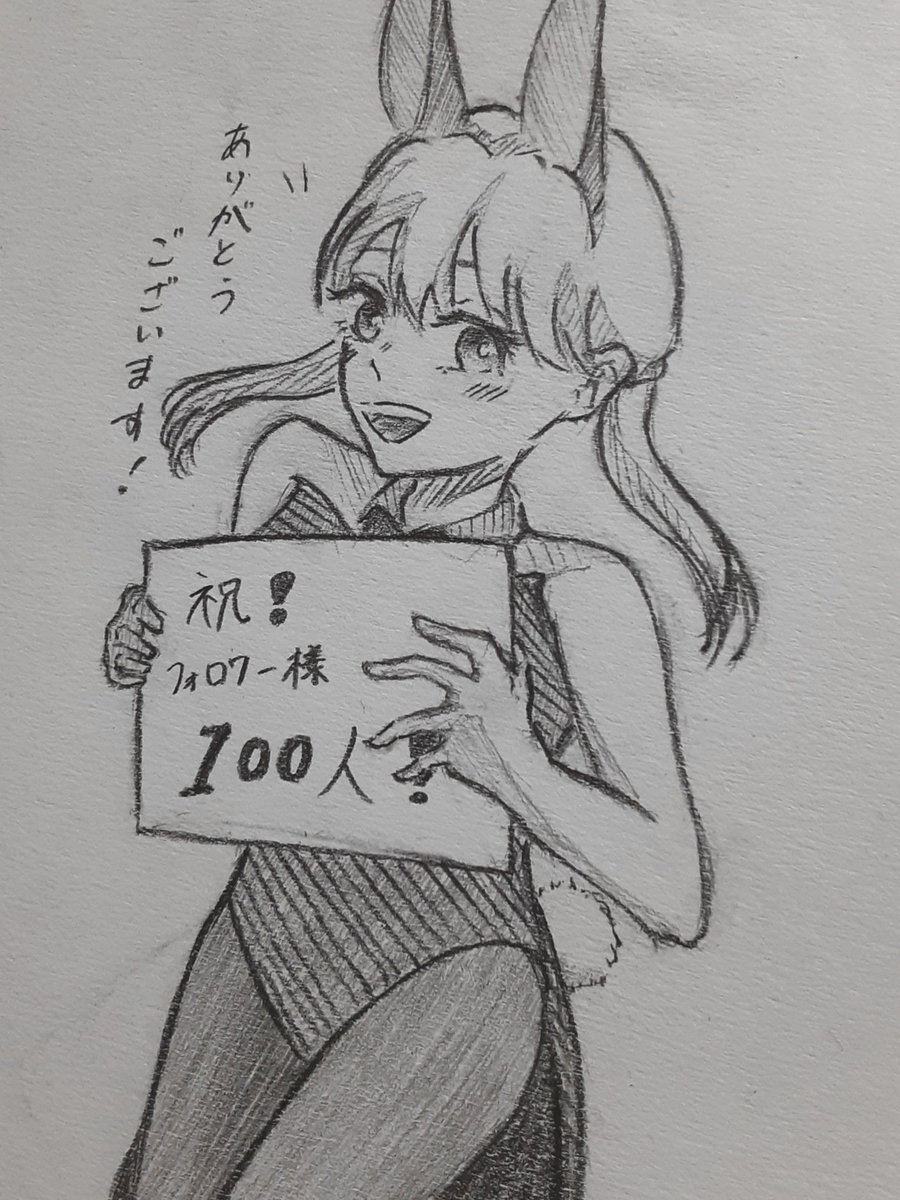 ありがとう
ございます!
祝!
フォロワー様
100人!